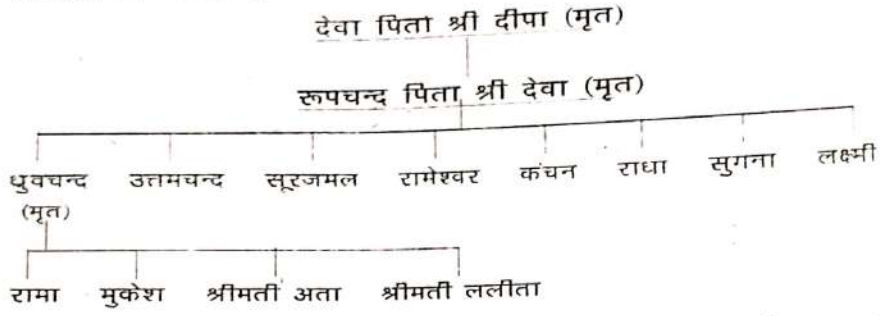 देवा पिता श्री दीपा (मृत)
रूपचन्द पिता श्री देवा (मृत)
ध्रुवचन्द उत्तमचन्द सूरजमल रामेश्वर कंचन राधा सुगना लक्ष्मी
(मृत)
रामा मुकेश श्रीमती अता श्रीमती ललीता